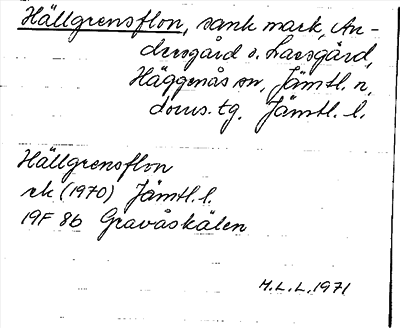 Hällgrensflon, sank mark, An-
dersgård o. Larsgård,
Häggenås sn, Jämtl. n.
doms. tg. Jämtl. l.
Hällgrensflon
ek (1970) Jämtl. l.
19F 8b Gravåskälen
M.L.L. 1971